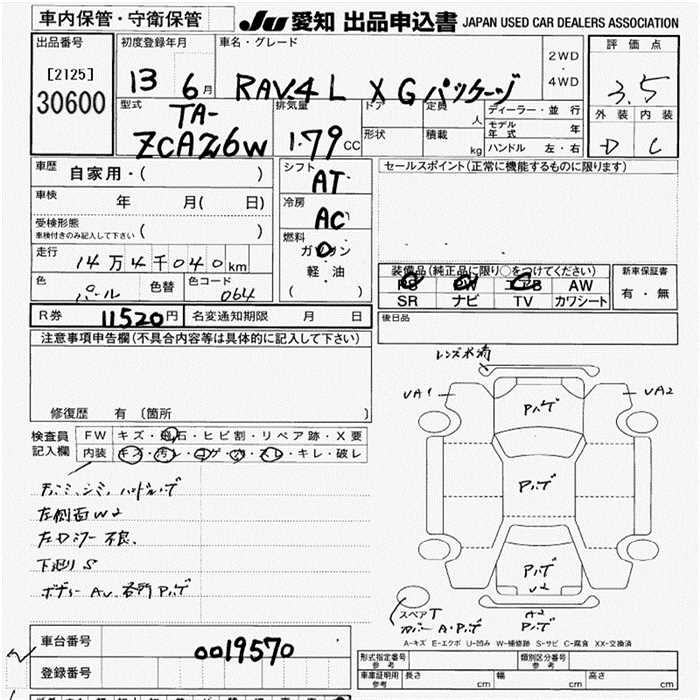 車内保管・守衛保管
JU 愛知 出品申込書 JAPAN USED CAR DEALERS ASSOCIATION
出品番号
[2125]
30600
初度登録年月
13 6月
車名・グレード
RAV4 L X Gパッケージ
2WD
・
4WD
評価点
3.5
外装 内装
D C
型式
TA-
ZCA26W
排気量
1.79 CC
ドア
形状
定員 人
積載 kg
ディーラー・並行
モデル年式 年
ハンドル 左・右
車歴 自家用・( )
車検 年 月( 日)
受検形態
車検付きのみ記入して下さい ( )
走行 14万4千040km
色 パール 色替 色コード 064
シフト
AT
冷房
AC
燃料
ガソリン
軽油
( )
セールスポイント(正常に機能するものに限ります)
装備品(純正品に限り○をつけてください)
PS PW エアB AW
SR ナビ TV カワシート
新車保証書
有・無
後日品
R券 11520円 名変通知期限 月 日
注意事項申告欄(不具合内容等は具体的に記入して下さい)
修復歴 有 〔箇所 〕
検査員
記入欄
FW キズ・飛石・ヒビ割・リペア跡・X要
内装 キズ・汚レ・コゲ・穴・スレ・キレ・破レ
左側面W2
左Dミラー不良.
下廻りS
ボデー AU. 各所Pハゲ
レンズ水滴
UA1
UA2
Pハゲ
Pハゲ
Pハゲ
U2
A2
Pハゲ
スペアT
カバー A・Pハゲ
A-キズ E-エクボ U-凹み W-補修跡 S-サビ C-腐食 XX-交換済
車台番号 0019570
登録番号
形式指定番号
参考
類別区分番号
参考
車庫証明用
参考
長さ cm 幅 cm 高さ cm